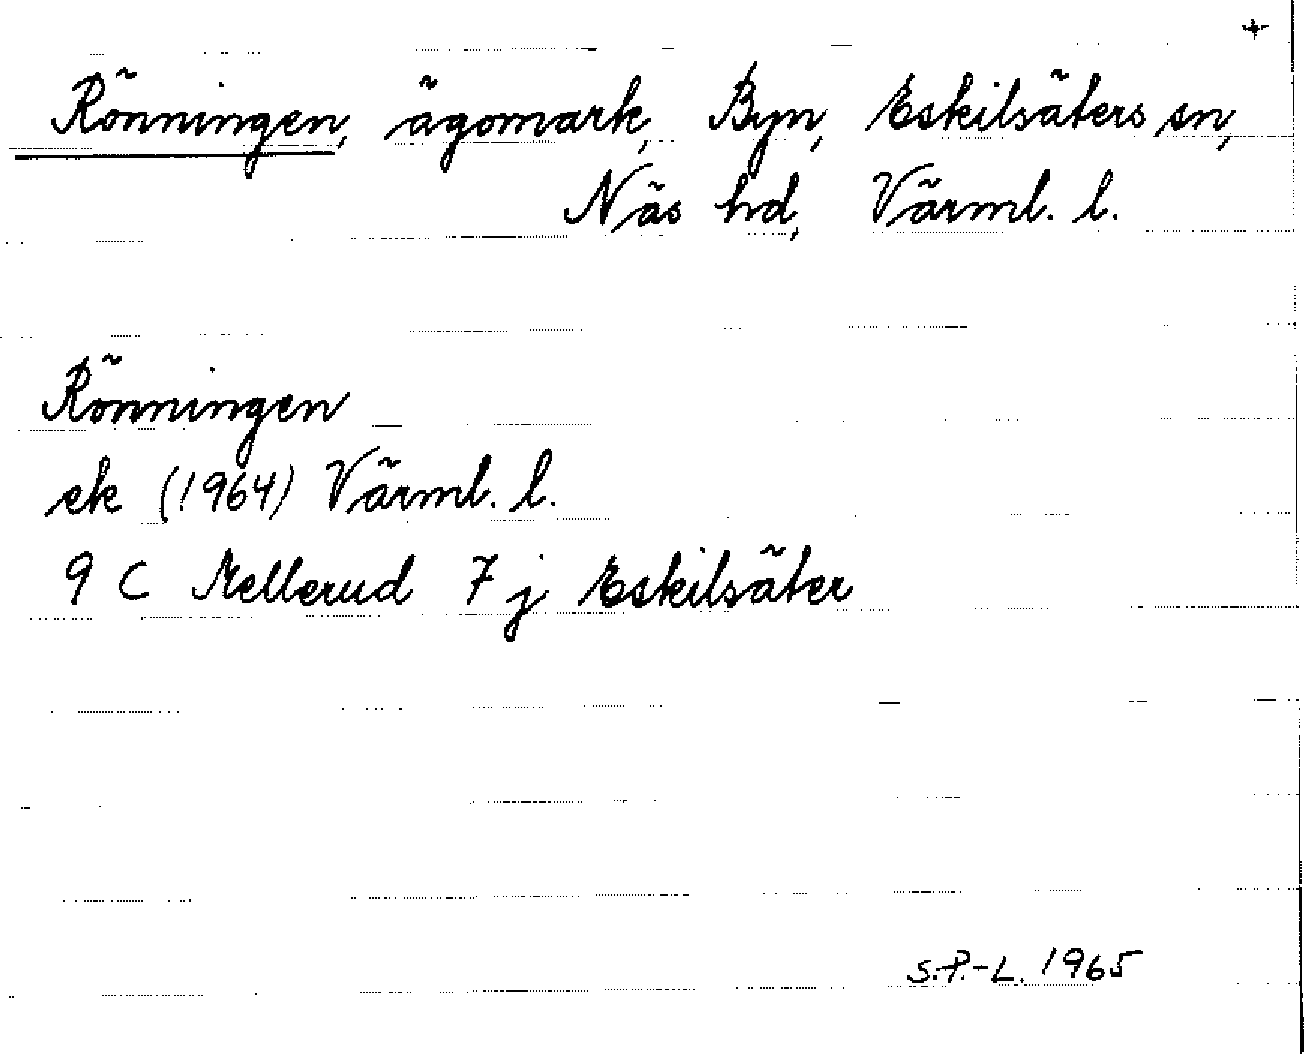 +
Rönningen, ägomark, Byn, Eskilsäters sn,
Näs hd, Värml. l.
Rönningen
ek (1964) Värml. l.
9 C Mellerud 7 j Eskilsäter
S.P.-L. 1965